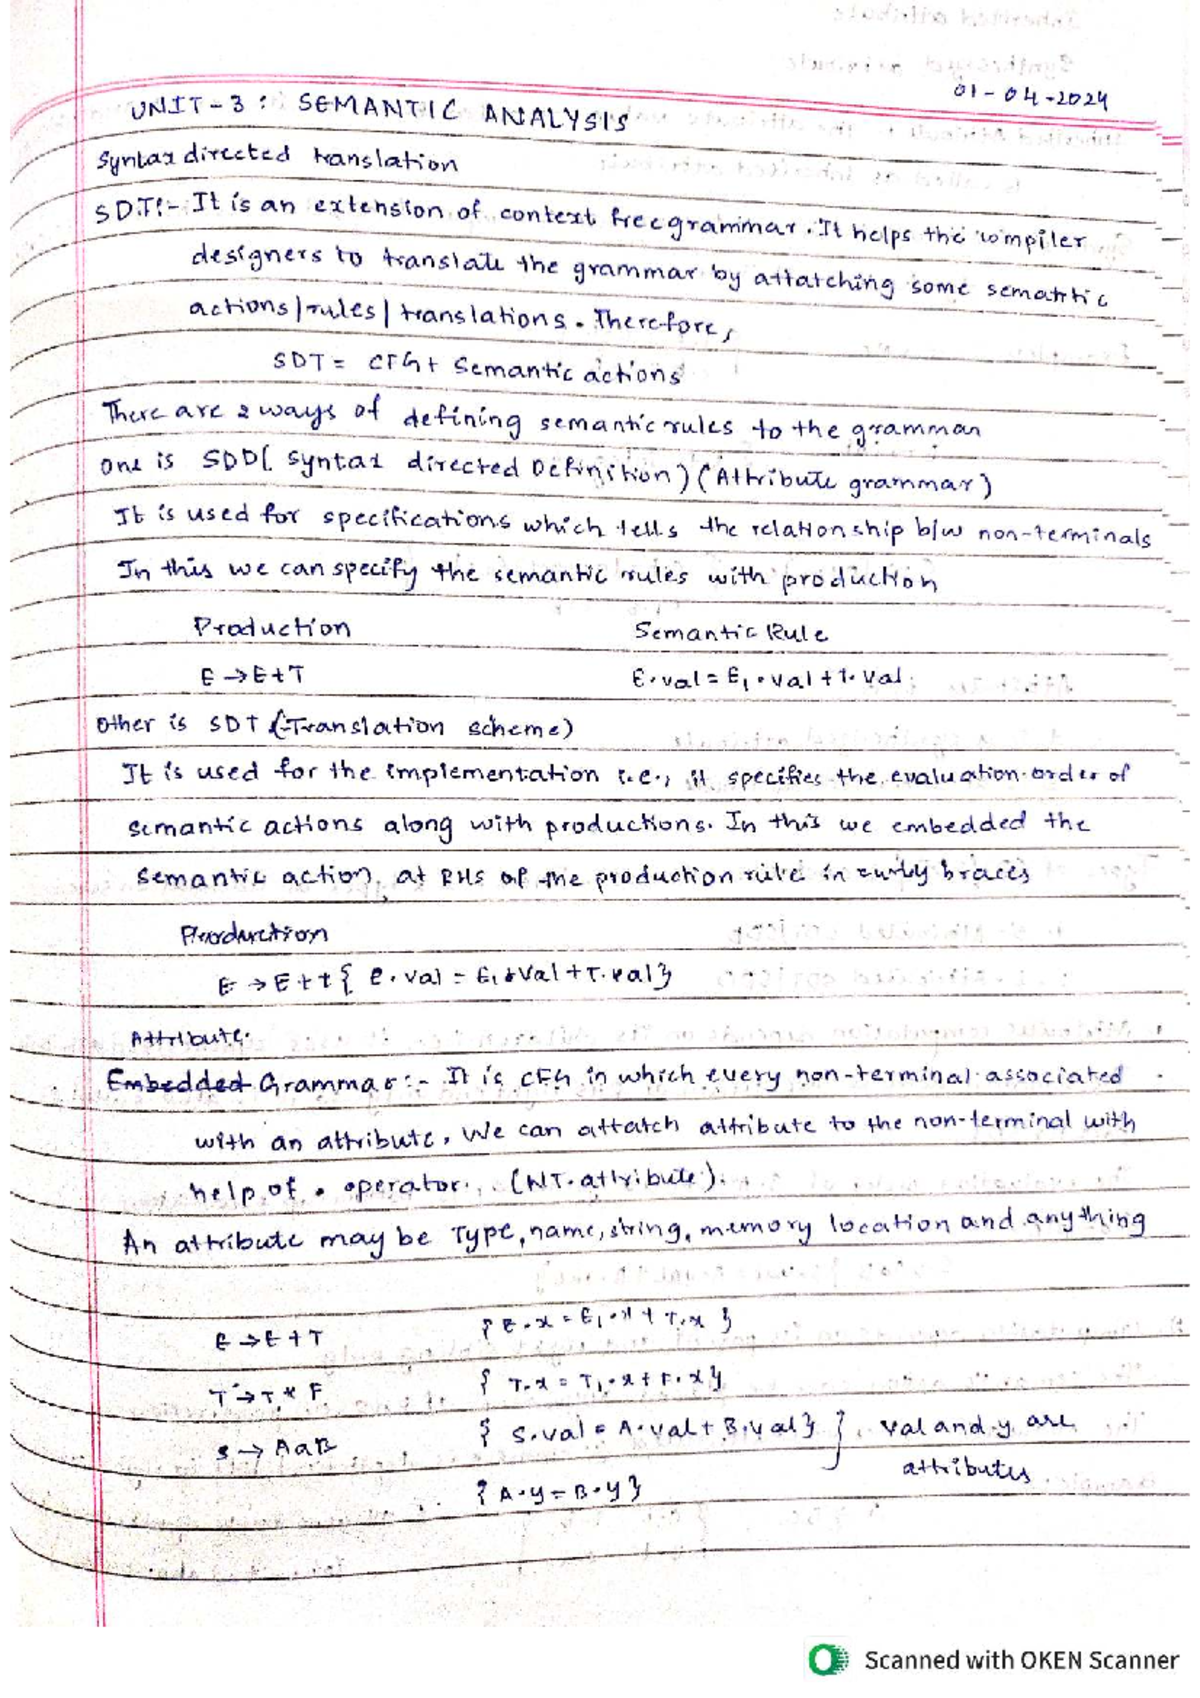 01-04-2024
UNIT-3: SEMANTIC ANALYSIS
Syntax directed translation
SDT:- It is an extension of context free grammar. It helps the compiler
designers to translate the grammar by attatching some semantic
actions/rules/translations. Therefore,
SDT = CFG + Semantic actions
There are 2 ways of defining semantic rules to the grammar
One is SDD( Syntax directed Definition) (Attribute grammar)
It is used for specifications which tells the relationship b/w non-terminals
In this we can specify the semantic rules with production
Production Semantic Rule
E → E+T E.val = E₁.val + T.val
Other is SDT (Translation scheme)
It is used for the implementation i.e., it specifies the evaluation order of
semantic actions along with productions. In this we embedded the
semantic action at RHS of the production rule in curly braces
Production
E → E+t { e.val = E₁.val + T.val}
Attribute
Embedded Grammar:- It is CFG in which every non-terminal associated
with an attribute, We can attatch attribute to the non-terminal with
help of . operator. (NT.attribute).
An attribute may be Type, name, string, memory location and anything
E → E+T { E.x = E₁.x + T.x }
T → T * F { T.x = T₁.x + F.x }
S → AaB { S.val = A.val + B.val } } val and y are
attributes
{ A.y = B.y }
Scanned with OKEN Scanner